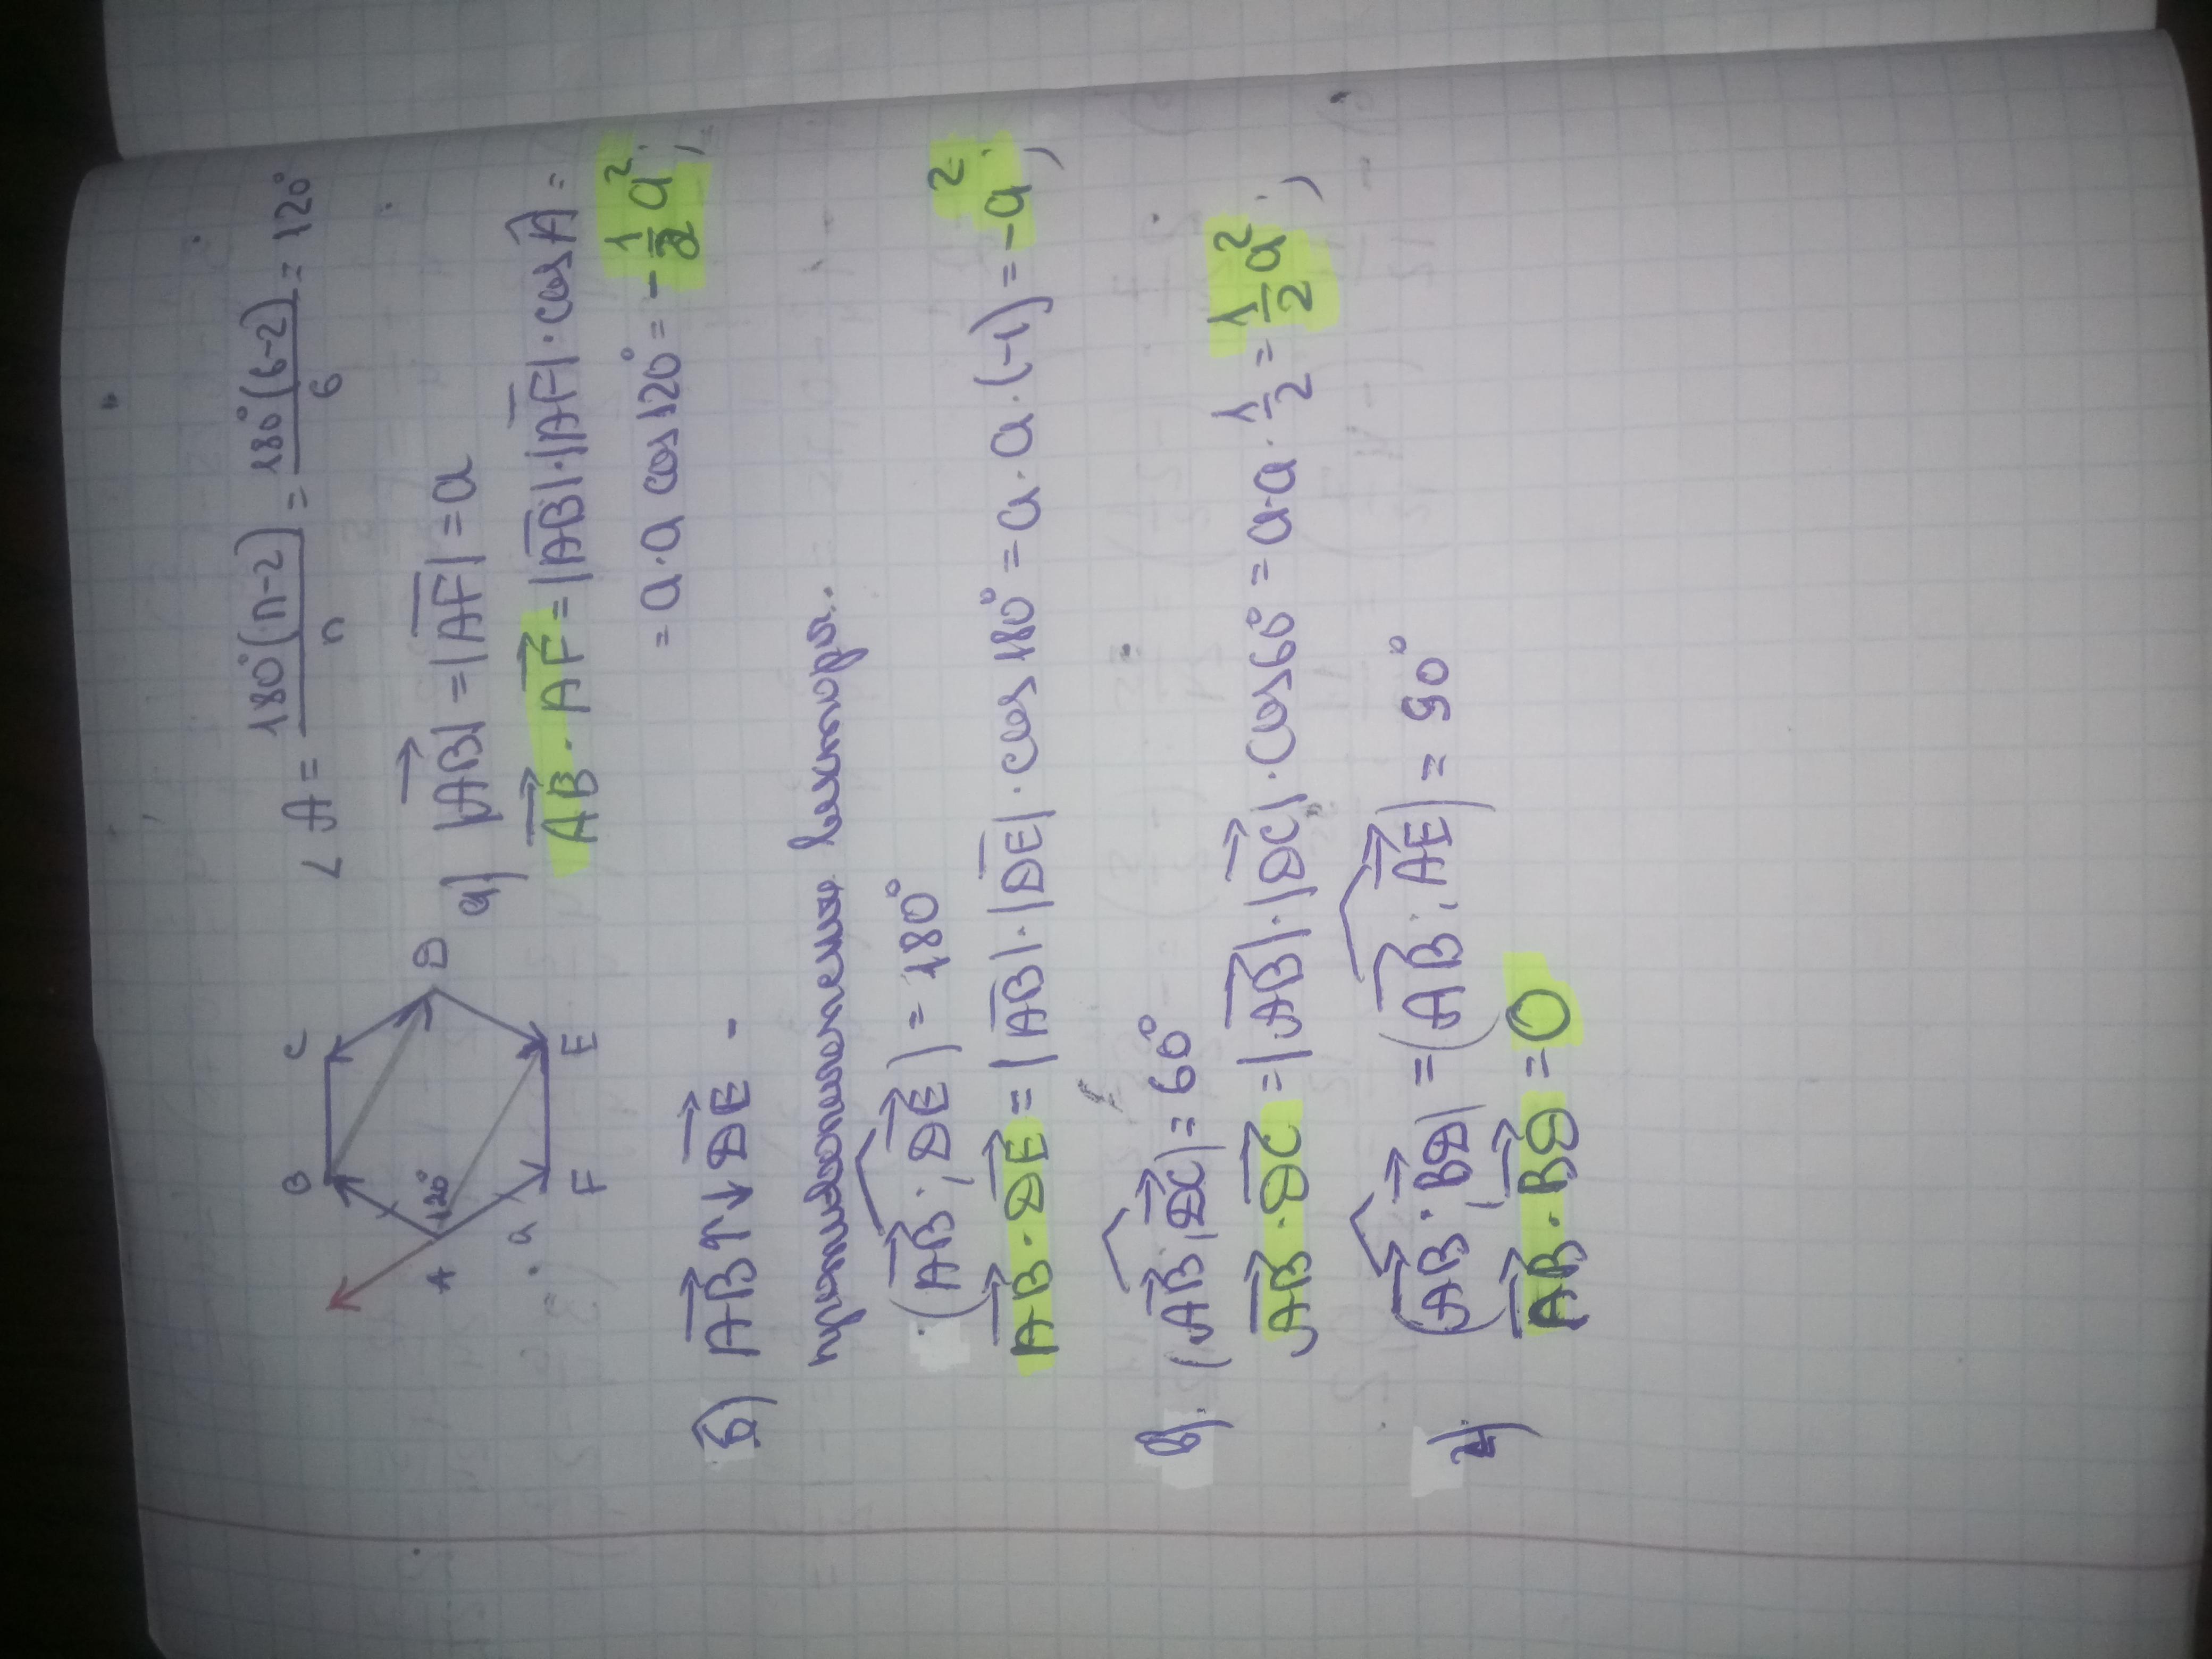 B C
A 120° D
a F E
∠A = 180°(n-2)/n = 180°(6-2)/6 = 120°
а) |AB| = |AF| = a
AB · AF = |AB|·|AF|·cos A =
= a·a cos 120° = -1/2 a²;
б) AB ↑↓ DE -
противоположно направлены
(AB; DE) = 180°
AB · DE = |AB|·|DE|·cos 180° = a·a·(-1) = -a²;
в) (AB; DC) = 60°
AB · DC = |AB|·|DC|·cos 60° = a·a·1/2 = 1/2 a²;
г) (AB · BD) = (AB; AE) = 90°
AB · BD = 0